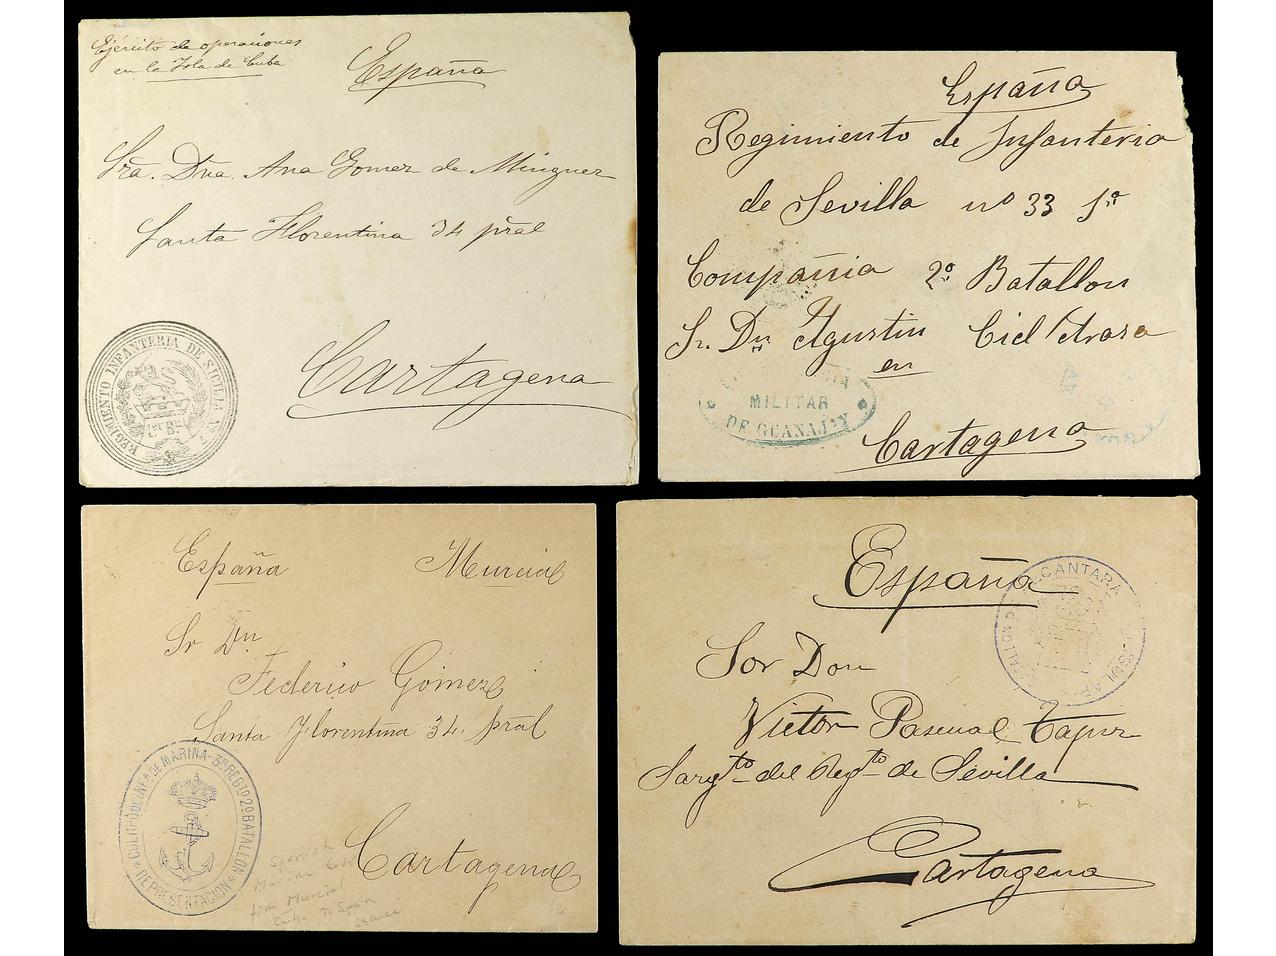 Ejército de operaciones
en la Isla de Cuba
España
Sra. Dña. Ana Gomez de Minguez
Santa Florentina 34 pral
Cartagena
REGIMIENTO INFANTERIA DE SICILIA Nº 7
España
Regimiento de Infanteria
de Sevilla nº 33 1ª
Compañia 2º Batallon
Sr. Dn Agustin Cid
en
Cartagena
MILITAR
DE GUANAJAY
España Murcia
Sr Dn
Federico Gómez
Santa Florentina 34. pral
Cartagena
CUERPO DE INFª DE MARINA - 3º REGTO 2º BATALLON
REPRESENTACION
Spanish
Marine
from Murcia
Cuba to Spain
España
Sor Don
Victor Pascual Tapir
Sargto del Regto de Sevilla
Cartagena
ALCANTARA